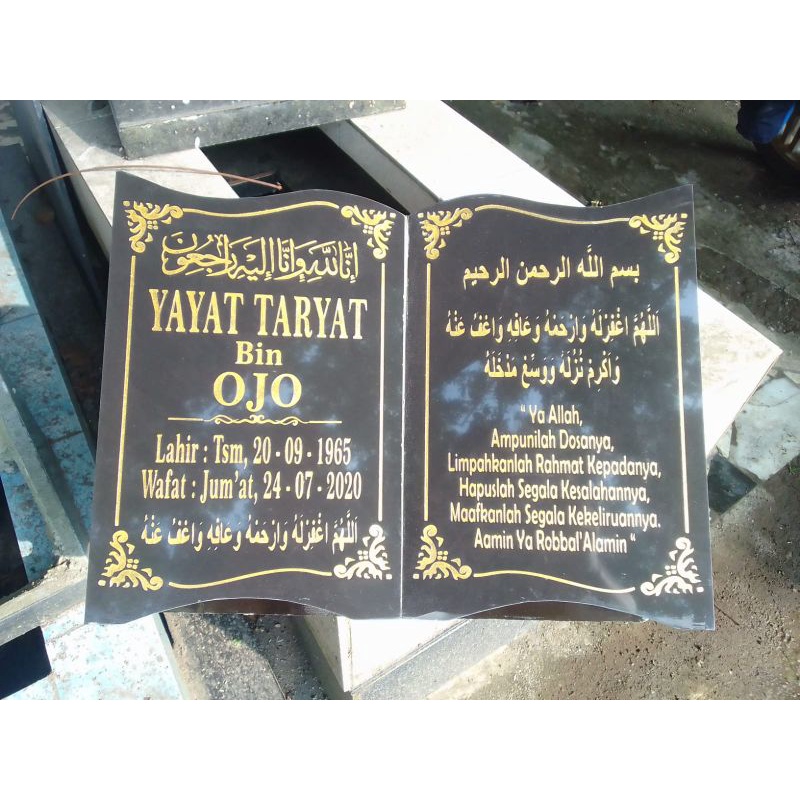 إنا لله وإنا إليه راجعون
YAYAT TARYAT
Bin
OJO
Lahir : Tsm, 20 - 09 - 1965
Wafat : Jum'at, 24 - 07 - 2020
اَللَّهُمَّ اغْفِرْلَهُ وَارْحَمْهُ وَعَافِهِ وَاعْفُ عَنْهُ
بسم اللَّه الرحمن الرحيم
اَللَّهُمَّ اغْفِرْلَهُ وَارْحَمْهُ وَعَافِهِ وَاعْفُ عَنْهُ
وَاَكْرِمْ نُزُلَهُ وَوَسِّعْ مَدْخَلَهُ
“ Ya Allah,
Ampunilah Dosanya,
Limpahkanlah Rahmat Kepadanya,
Hapuslah Segala Kesalahannya,
Maafkanlah Segala Kekeliruannya.
Aamin Ya Robbal'Alamin “